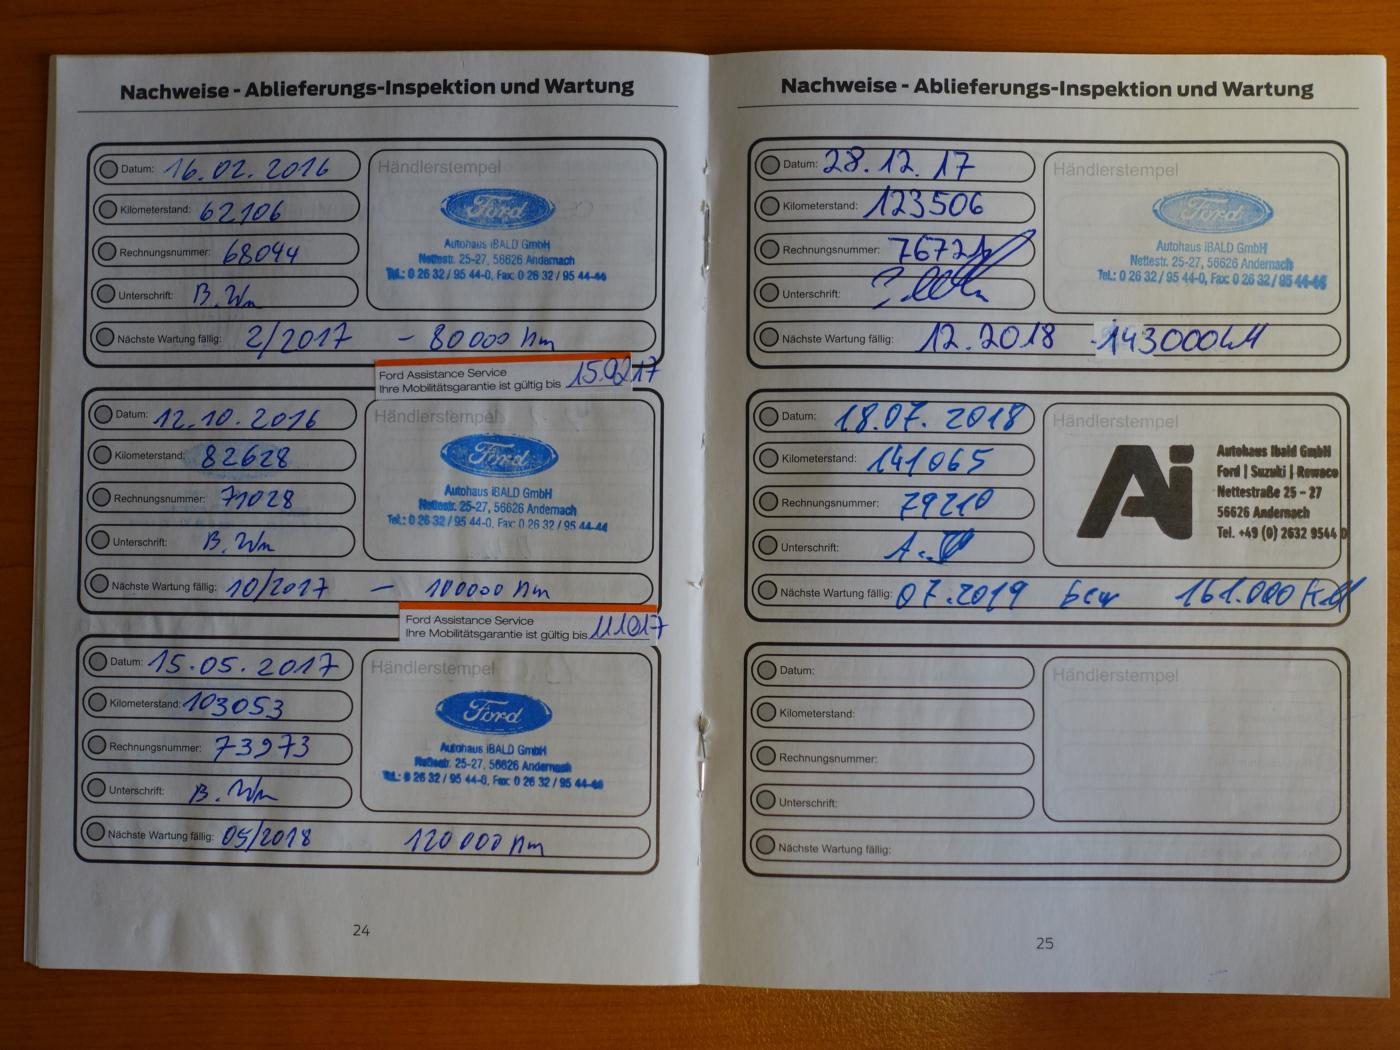 Nachweise - Ablieferungs-Inspektion und Wartung
Datum: 16.02.2016
Kilometerstand: 62106
Rechnungsnummer: 68044
Unterschrift:
Händlerstempel
Ford
Autohaus iBALD GmbH
Nettestr. 25-27, 56626 Andernach
Tel.: 0 26 32 / 95 44-0, Fax: 0 26 32 / 95 44-44
Nächste Wartung fällig: 2/2017 - 80000 km
Ford Assistance Service
Ihre Mobilitätsgarantie ist gültig bis 15.02.17
Datum: 12.10.2016
Kilometerstand: 82628
Rechnungsnummer: 71028
Unterschrift:
Händlerstempel
Ford
Autohaus iBALD GmbH
Nettestr. 25-27, 56626 Andernach
Tel.: 0 26 32 / 95 44-0, Fax: 0 26 32 / 95 44-44
Nächste Wartung fällig: 10/2017 - 100000 km
Ford Assistance Service
Ihre Mobilitätsgarantie ist gültig bis
Datum: 15.05.2017
Kilometerstand: 103053
Rechnungsnummer: 73973
Unterschrift:
Händlerstempel
Ford
Autohaus iBALD GmbH
Nettestr. 25-27, 56626 Andernach
Tel.: 0 26 32 / 95 44-0, Fax: 0 26 32 / 95 44-44
Nächste Wartung fällig: 05/2018 120000 km
24
Nachweise - Ablieferungs-Inspektion und Wartung
Datum: 28.12.17
Kilometerstand: 123506
Rechnungsnummer:
Unterschrift:
Händlerstempel
Ford
Autohaus iBALD GmbH
Nettestr. 25-27, 56626 Andernach
Tel.: 0 26 32 / 95 44-0, Fax: 0 26 32 / 95 44-44
Nächste Wartung fällig: 12.2018 - 143000 KM
Datum: 18.07.2018
Kilometerstand: 141065
Rechnungsnummer: 79210
Unterschrift:
Händlerstempel
Ai
Autohaus Ibald GmbH
Ford | Suzuki | Rewaco
Nettestraße 25 - 27
56626 Andernach
Tel. +49 (0) 2632 9544 0
Nächste Wartung fällig: 07.2019 bzw 161.000 KM
Datum:
Kilometerstand:
Rechnungsnummer:
Unterschrift:
Händlerstempel
Nächste Wartung fällig:
25